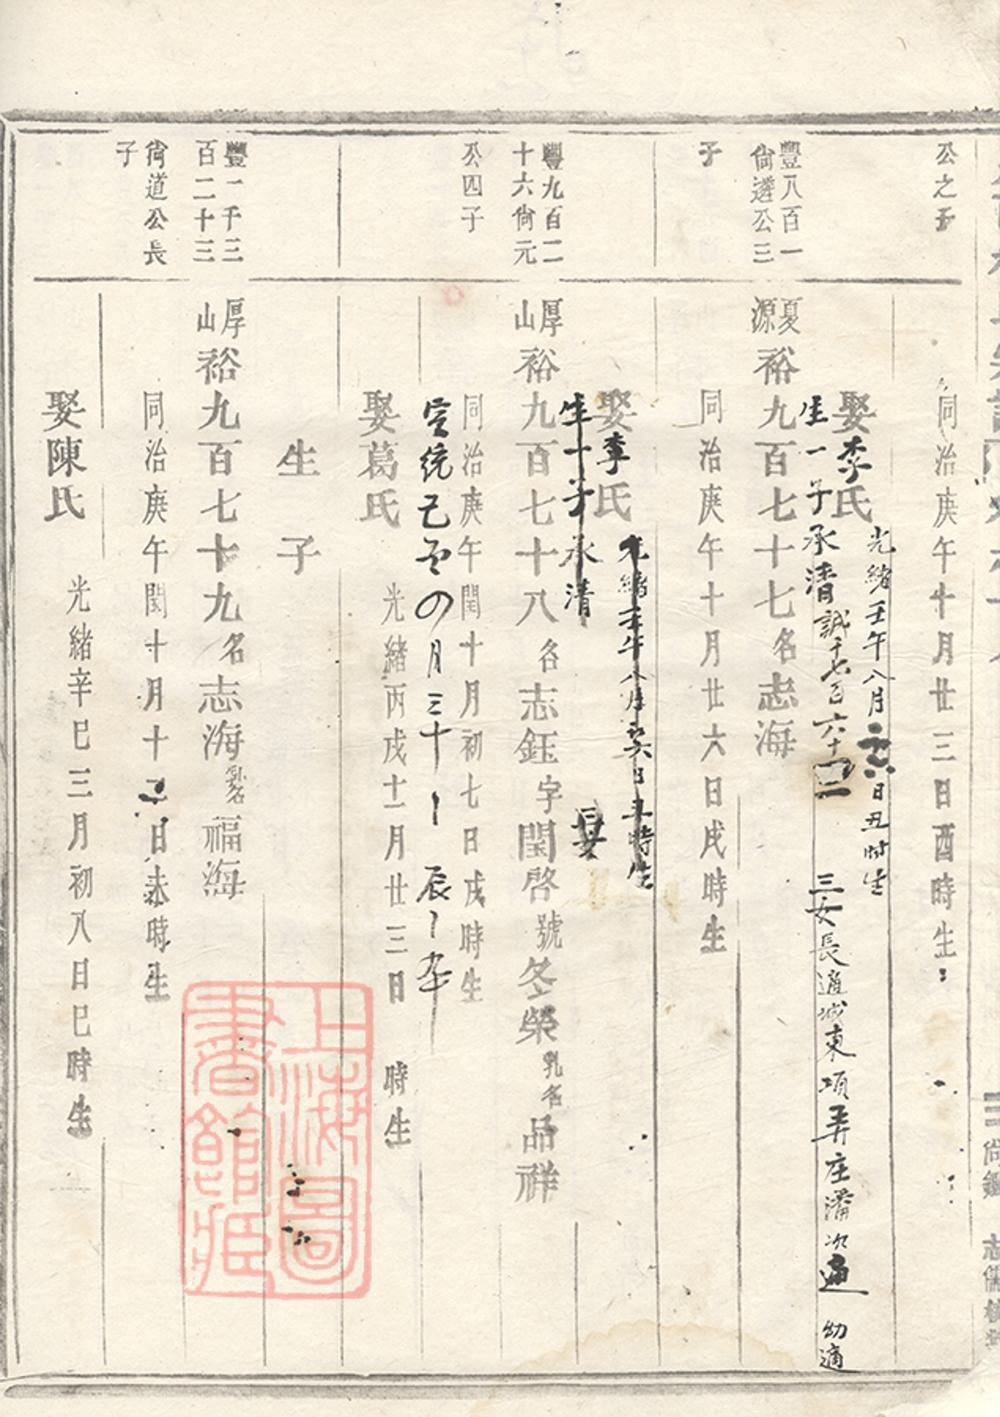 公之子
同治庚午十月廿三日酉時生
光緒壬午八月
日丑時生
娶李氏
生一子承清
誠千七百六十
三女長適城東項弄庄潘次適
幼適
豐八百一
尙選公三
子
夏源裕九百七十七名志海
同治庚午十月廿六日戌時生
光緒壬午八月
日丑時生
娶李氏
生一子承清
豐九百二
十六尙元
公四子
厚山裕九百七十八名志鈺字閏啓號冬榮乳名品祥
同治庚午閏十月初七日戌時生
宣統己
月三十
辰
光緒丙戌十一月廿三日 時生
娶葛氏
生子
豐一千三
百二十三
尙道公長
子
厚山裕九百七十九名志海乳名福海
同治庚午閏十月十
日未時生
光緒辛巳三月初八日巳時生
娶陳氏
上海圖書館藏